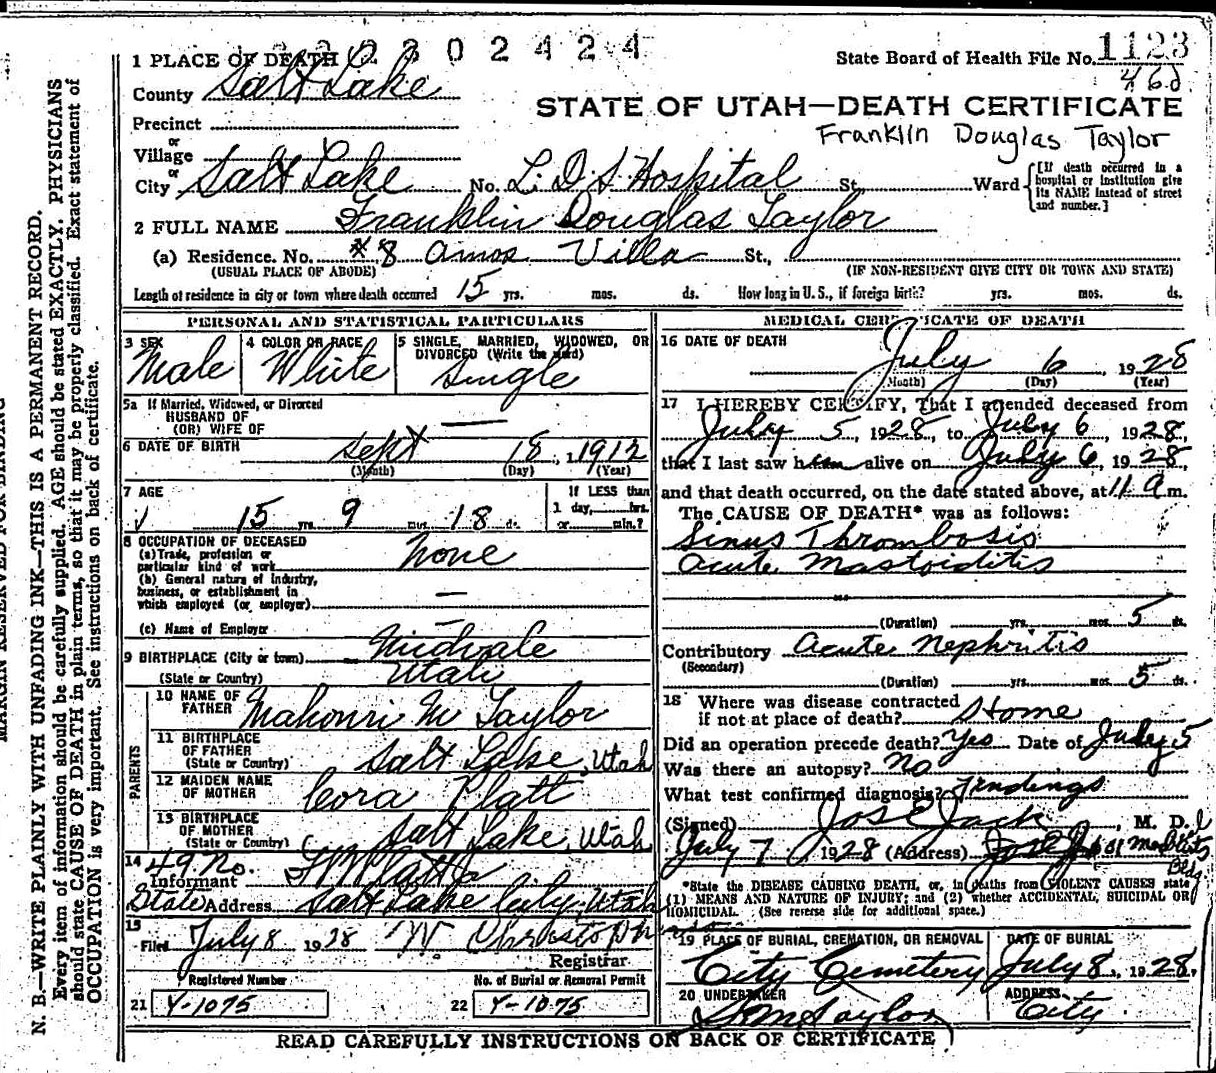 MARGIN RESERVED FOR BINDING
N. B.—WRITE PLAINLY WITH UNFADING INK—THIS IS A PERMANENT RECORD.
Every item of information should be carefully supplied. AGE should be stated EXACTLY. PHYSICIANS
should state CAUSE OF DEATH in plain terms, so that it may be properly classified. Exact statement of
OCCUPATION is very important. See instructions on back of certificate.
302424
1 PLACE OF DEATH
State Board of Health File No. 1123
460
County Salt Lake
STATE OF UTAH—DEATH CERTIFICATE
Franklin Douglas Taylor
Precinct
or
Village
or
City Salt Lake No. L. D S Hospital St. Ward
[If death occurred in a
hospital or institution give
its NAME instead of street
and number.]
2 FULL NAME Franklin Douglas Taylor
(a) Residence. No. #8 Amos Villa St.,
(USUAL PLACE OF ABODE) (IF NON-RESIDENT GIVE CITY OR TOWN AND STATE)
Length of residence in city or town where death occurred 15 yrs. mos. ds. How long in U. S., if foreign birth? yrs. mos. ds.
PERSONAL AND STATISTICAL PARTICULARS
3 SEX Male
4 COLOR OR RACE White
5 SINGLE, MARRIED, WIDOWED, OR
DIVORCED (Write the word)
Single
5a If Married, Widowed, or Divorced
HUSBAND OF
(OR) WIFE OF —
6 DATE OF BIRTH Sept 18, 1912
(Month) (Day) (Year)
7 AGE
15 yrs. 9 mos. 18 ds.
If LESS than
1 day, hrs.
or min.?
8 OCCUPATION OF DECEASED
(a) Trade, profession or
particular kind of work None
(b) General nature of Industry,
business, or establishment in
which employed (or employer) —
(c) Name of Employer
9 BIRTHPLACE (City or town) Midvale
(State or Country) Utah
PARENTS
10 NAME OF
FATHER Mahonri M Taylor
11 BIRTHPLACE
OF FATHER
(State or Country) Salt Lake, Utah
12 MAIDEN NAME
OF MOTHER Cora Platt
13 BIRTHPLACE
OF MOTHER
(State or Country) Salt Lake, Utah
14 49 No.
Informant
State Address Salt Lake City, Utah
15
Filed July 8 1928 W Christoph
Registrar
Registered Number
21 Y-1075
No. of Burial or Removal Permit
22 Y-1075
MEDICAL CERTIFICATE OF DEATH
16 DATE OF DEATH
July 6, 1928
(Month) (Day) (Year)
17 I HEREBY CERTIFY, That I attended deceased from
July 5, 1928, to July 6, 1928,
that I last saw him alive on July 6, 1928,
and that death occurred, on the date stated above, at 11 a m.
The CAUSE OF DEATH* was as follows:
Sinus Thrombosis
Acute Mastoiditis
(Duration) yrs. mos. 5 ds.
Contributory Acute Nephritis
(Secondary)
(Duration) yrs. mos. 5 ds.
18 Where was disease contracted
if not at place of death? Home
Did an operation precede death? Yes Date of July 5
Was there an autopsy? No
What test confirmed diagnosis? Findings
(Signed) Jos E Jack, M. D.
July 7 1928 (Address)
Bldg
*State the DISEASE CAUSING DEATH, or, in deaths from VIOLENT CAUSES state
(1) MEANS AND NATURE OF INJURY; and (2) whether ACCIDENTAL, SUICIDAL OR
HOMICIDAL. (See reverse side for additional space.)
19 PLACE OF BURIAL, CREMATION, OR REMOVAL
City Cemetery
DATE OF BURIAL
July 8, 1928
20 UNDERTAKER
S M Taylor
ADDRESS
City
READ CAREFULLY INSTRUCTIONS ON BACK OF CERTIFICATE